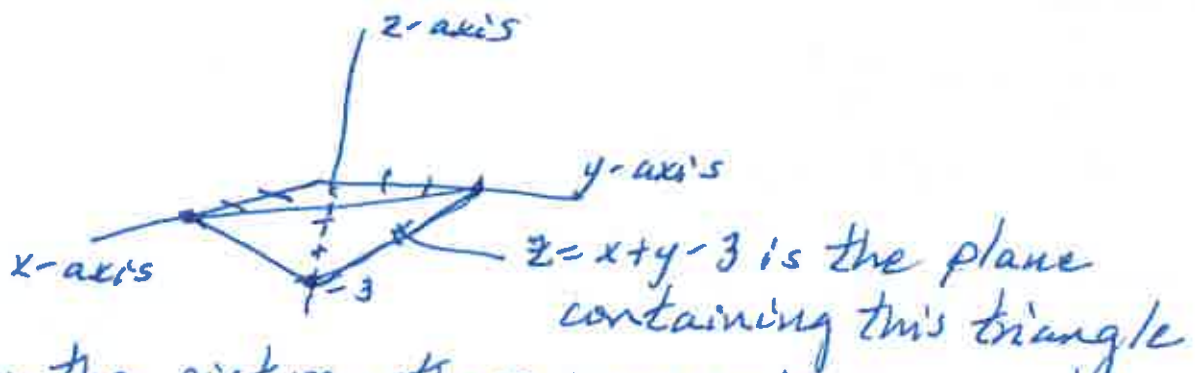 z-axis
y-axis
x-axis
-3
z=x+y-3 is the plane
containing this triangle
the picture